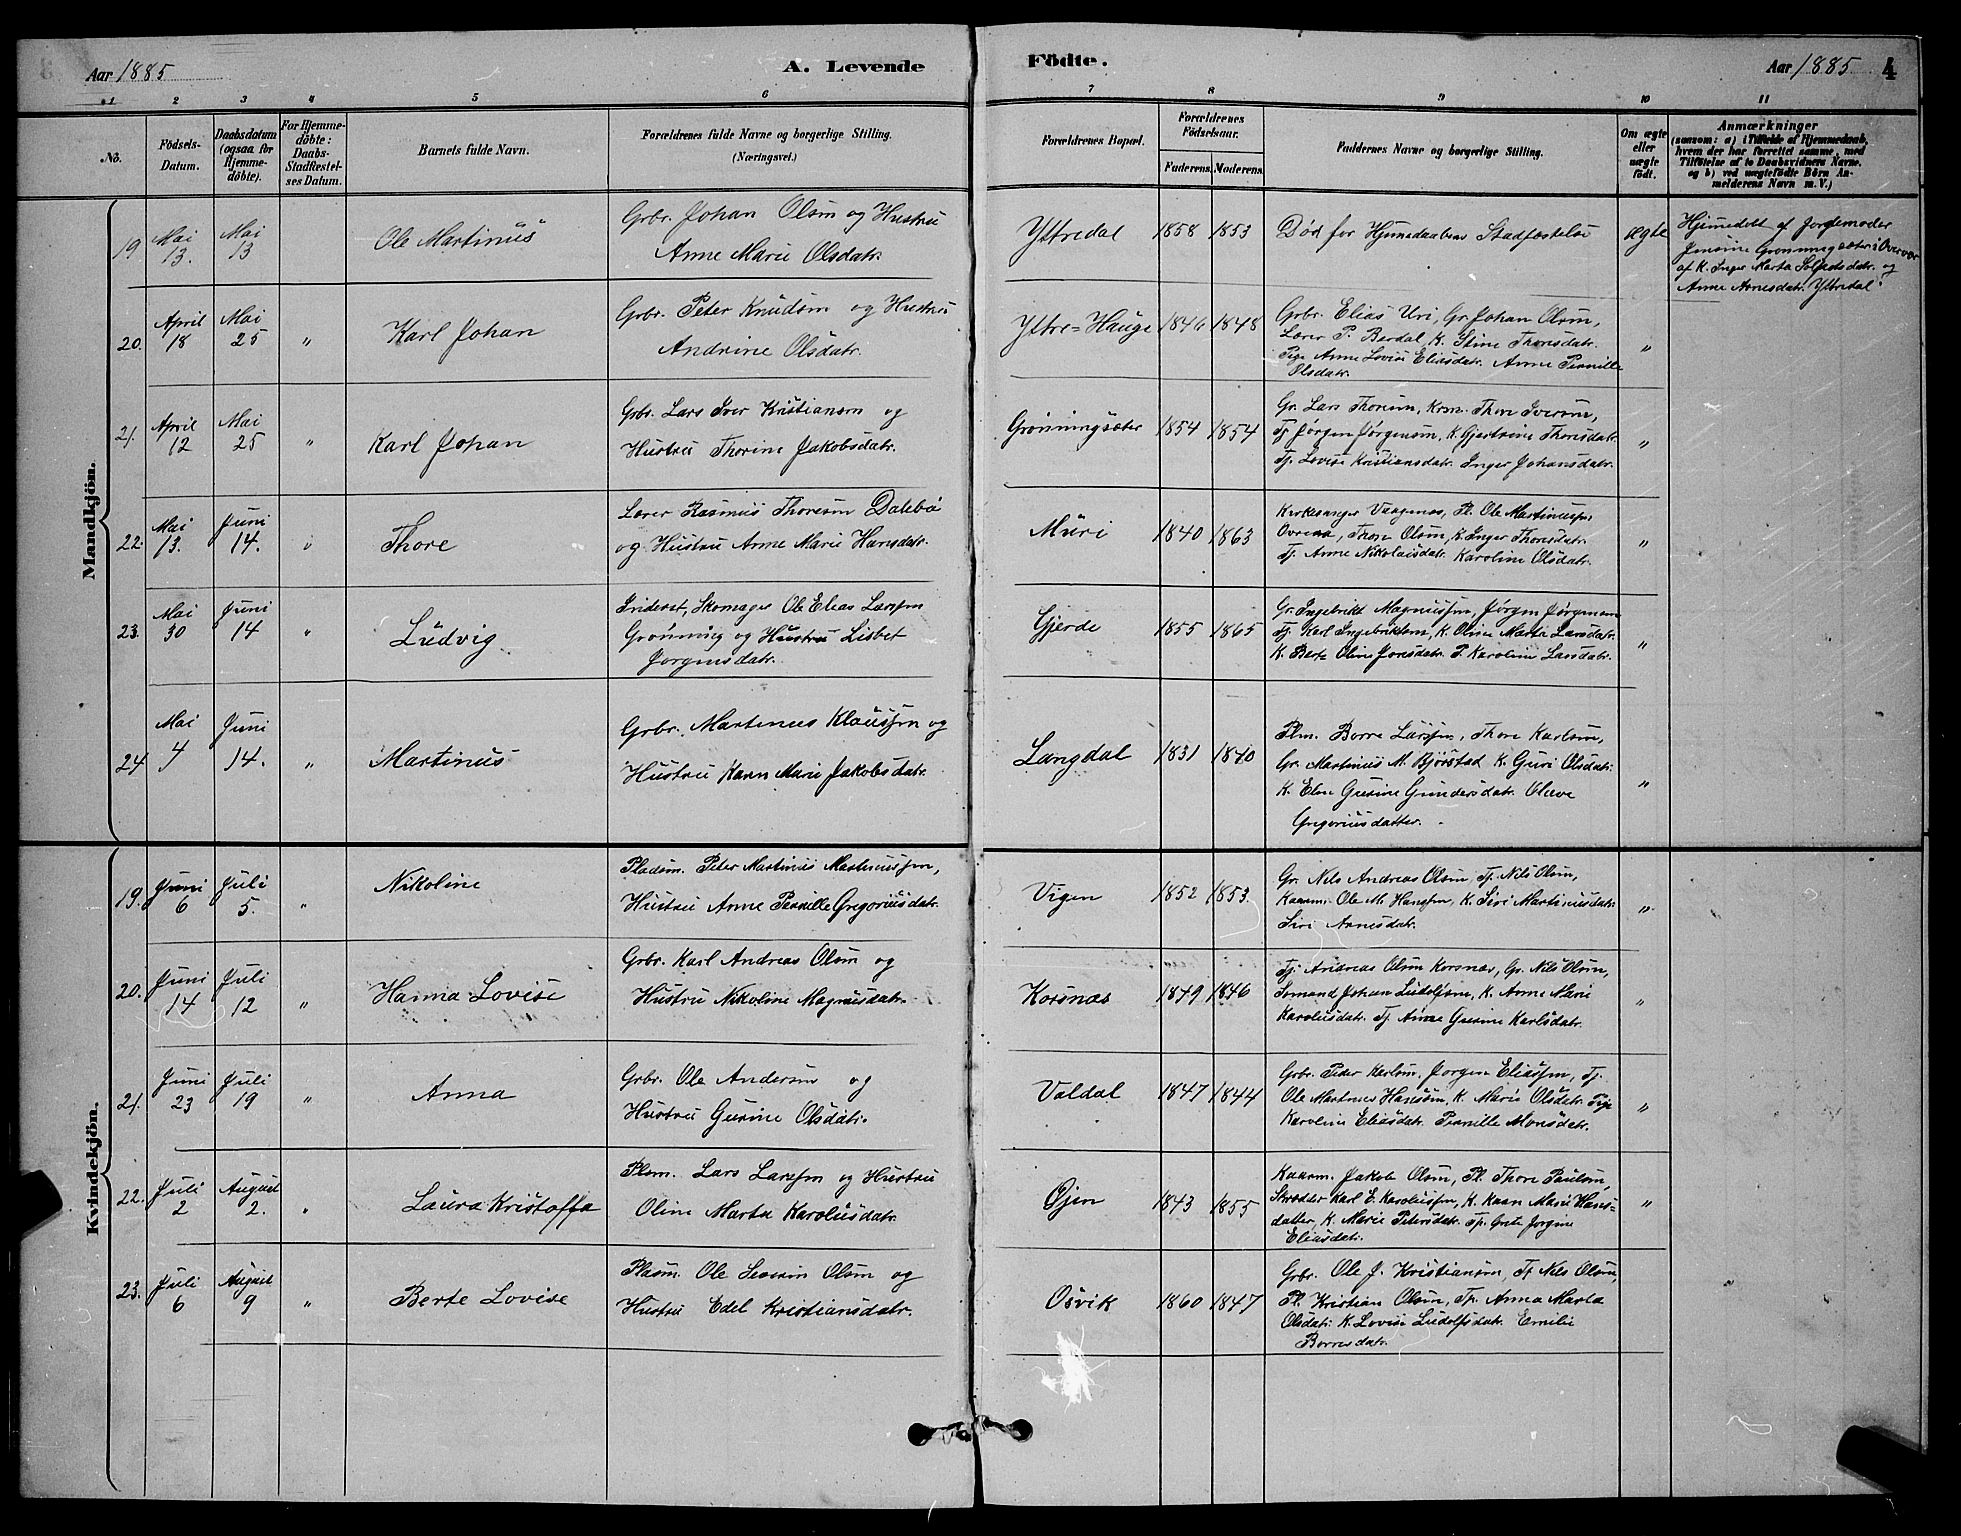 Aar 1885
A. Levende Födte.
Aar 1885
4
1 2 3 4 5 6 7 8 9 10 11
No.
Födsels-
Datum.
Daabsdatum
(ogsaa for
Hjemme-
döbte).
For Hjemme-
döbte:
Daabs-
Stadfæstel-
ses Datum.
Barnets fulde Navn.
Forældrenes fulde Navne og borgerlige Stilling.
(Næringsvei.)
Forældrenes Bopæl.
Forældrenes
Födselsaar.
Faderens. Moderens.
Faddernes Navne og borgerlige Stilling.
Om ægte
eller
uægte
födt.
Anmærkninger
(saasom: a) i Tilfælde af Hjemmedaab,
hvem der har forrettet samme, med
Tilföielse af to Daabsvidners Navne.
og b) ved uægtefödte Börn An-
melderens Navn m. V.)
Mandkjön.
19 Mai 13. Mai 13 Ole Martinus
Grbr. Johan Olsøn og Hustru
Anne Marie Olsdatr.
Yttredal 1858 1853
Død før Hjemedaabens Stadfæstelse
ægte
Hjemedøbt af Jordemoder
Jensine Grønningsæter i Overvær
af K. Inger Marta Solfestsdatr. og
Anne Arnesdatr. Yttredal.
20. April 18 Mai 25 " Karl Johan
Grbr. Peter Knudsøn og Hustru
Andrine Olsdatr.
Yttre=Hauge 1846 1848
Grbr. Elias Uri, Gr. Johan Olsøn,
Lærer P. Berdal, K. Stine Thoresdatr.
Pige Anne Lovise Eliasdatr. Anne Pernille
Olsdatr.
"
21. April 12 Mai 25 " Karl Johan
Grbr. Lars Iver Kristiansøn og
Hustru Thorine Jakobsdatr.
Grønningsæter 1854 1854
Gr. Lars Thoresøn, Thore Iversøn,
Tj. Jørgen Jørgensøn, K. Gjertrine Thoresdatr.
Tj. Lovise Kristiansdatr. Inger Johansdatr.
"
22. Mai 13. Juni 14. Thore
Lærer Rasmus Thoresøn Dalebø
og Hustru Anne Marie Hansdatr.
Muri 1840 1863
Kirkesanger Vaagenæs, Pl. Ole Martinussøn
Thore Olsøn, K. Inger Thoresdatr.
Tj. Anne Nikolaisdatr. Karoline Olsdatr.
"
23. Mai 30 Juni 14 " Ludvig
Inderst, Skomager Ole Elias Larssøn
Grønning og Hustru Lisbet
Jørgensdatr.
Gjerde 1855 1865
Gr. Ingebrikt Magnussøn, Jørgen Jørgensøn
Tj. Karl Ingebriktsøn, K. Oline Marta Larsdatr.
K. Berte Oline Jonsdatr. P. Karoline Larsdatr.
"
24 Mai 4 Juni 14. " Martinus
Grbr. Martinus Klaussøn og
Hustru Karen Marie Jakobsdatr.
Langdal 1831 1840
Plm. Børre Larssøn, Thore Karlsøn,
Gr. Martinus M. Bjørstad K. Guri Olsdatr.
K. Elen Gurine Gundersdatr. Oleve
Gregoriusdatter.
"
Kvindekjön.
19. Juni 6 Juli 5. " Nikoline
Pladsm. Peter Martinus Martinussøn,
Hustru Anne Pernille Gregoriusdatr.
Vigen 1852 1853
Gr. Nils Andreas Olsøn, Tj. Nils Olsøn,
Kaarm. Ole M. Hanssøn, K. Siri Martinusdatr.
Siri Arnesdatr.
"
20. Juni 14 Juli 12 " Hanna Lovise
Grbr. Karl Andreas Olsøn og
Hustru Nikoline Magnusdatr.
Korsnæs 1849 1846
Tj. Andreas Olsøn Korsnæs, Gr. Nils Olsøn,
Sømand Johan Ludolfsøn, K. Anne Marie
Karolusdatr. Tj. Anne Gurine Karlsdatr.
"
21. Juni 23 Juli 19 " Anna
Grbr. Ole Andersøn og
Hustru Gurine Olsdatr.
Valdal 1847 1844
Grbr. Peter Karlsøn, Jørgen Eliassøn, Tj.
Ole Martinus Hansøn, K. Marie Olsdatr. Pige
Karoline Eliasdatr. Pernille Monsdatr.
"
22. Juli 2 August 2. " Laura Kristoffa
Plsm. Lars Larssøn og Hustru
Oline Marta Karolusdatr.
Øjen 1843 1855
Kaarm. Jakob Olsøn, Pl. Thore Paulsøn,
Skrædder Karl E. Karolussøn, K. Karen Marie Hans=
datter, K. Marie Petersdatr. Tp. Grete Jørgine
Eliasdatr.
"
23. Juli 6 August 9 " Berte Lovise
Plasm. Ole Severin Olsøn og
Hustru Edel Kristiansdatr.
Osvik 1860 1847
Grbr. Ole J. Kristiansøn, Tj. Nils Olsøn,
Pl. Kristian Olsøn, Tp. Anna Marta
Olsdatr. K. Lovise Ludolfsdatr. Emilie
Børresdatr.